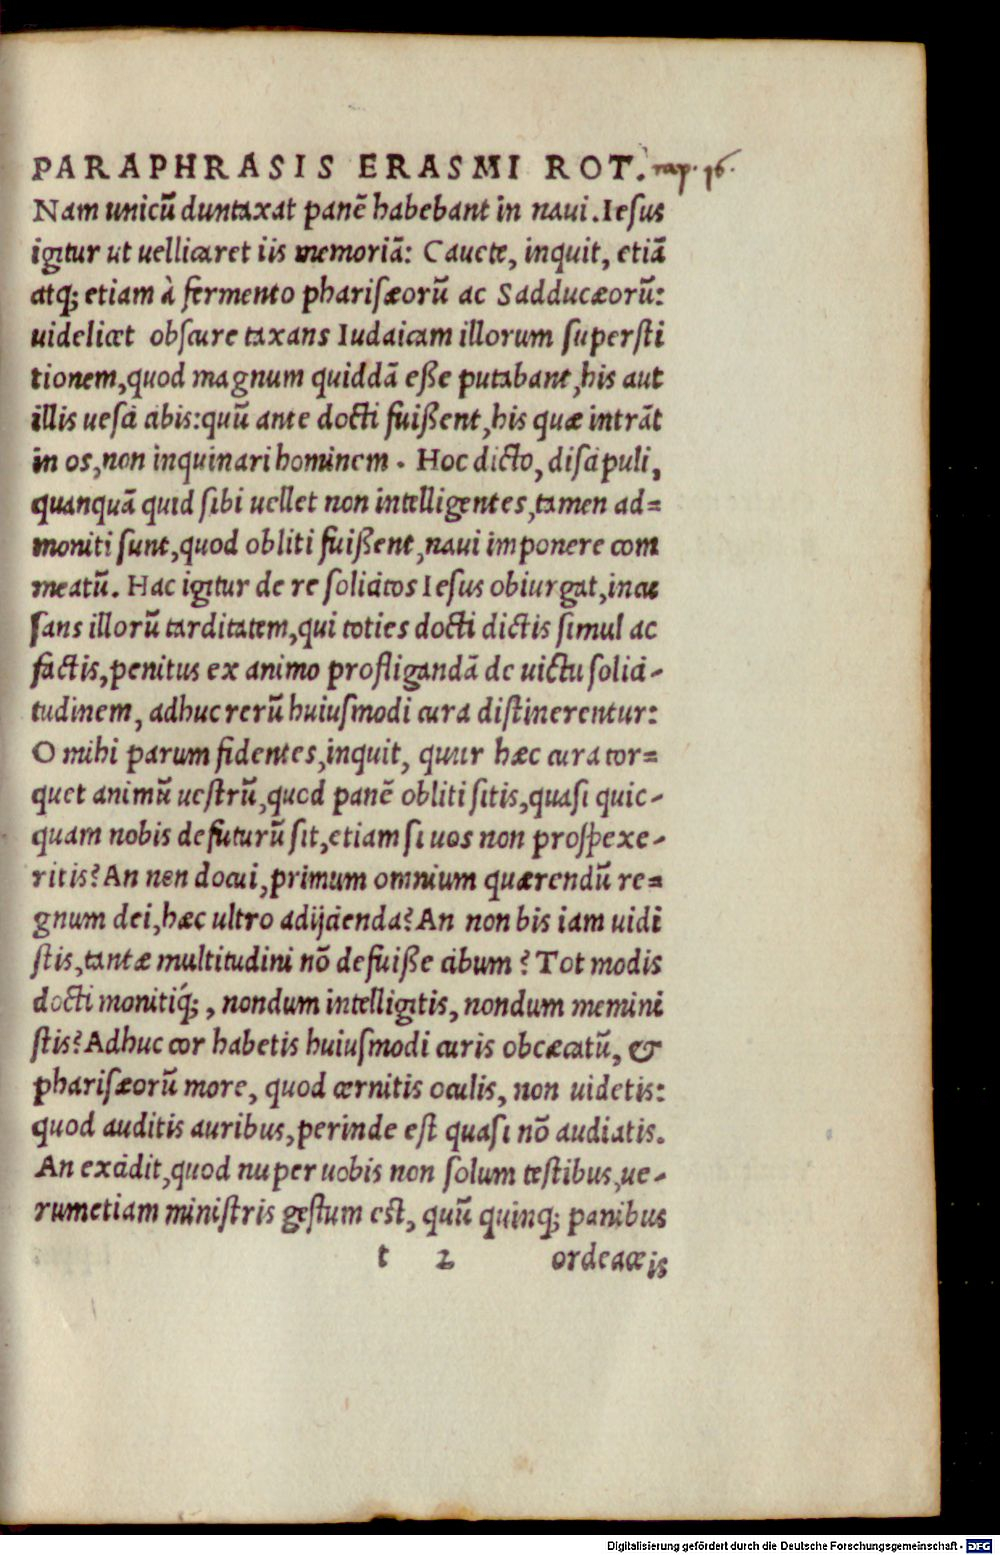 PARAPHRASIS ERASMI ROT. cap. 16.
Nam unicũ duntaxat panẽ habebant in naui. Iesus
igitur ut uellicaret iis memoriã: Cauete, inquit, etiã
atq; etiam à fermento pharisæorũ ac Sadducæorũ:
uidelicet obscure taxans Iudaicam illorum supersti
tionem, quod magnum quiddã eße putabant, his aut
illis uesci cibis: quũ ante docti fuißent, his quæ intrãt
in os, non inquinari hominem. Hoc dicto, discipuli,
quanquã quid sibi uellet non intelligentes, tamen ad=
moniti sunt, quod obliti fuißent, naui imponere com
meatũ. Hac igitur de re solicitos Iesus obiurgat, incu
sans illorũ tarditatem, qui toties docti dictis simul ac
factis, penitus ex animo profligandã de uictu solici-
tudinem, adhuc rerũ huiusmodi cura distinerentur:
O mihi parum fidentes, inquit, quur hæc cura tor=
quet animũ uestrũ, quod panẽ obliti sitis, quasi quic-
quam nobis defuturũ sit, etiam si uos non prospexe-
ritis? An non docui, primum omnium quærendũ re=
gnum dei, hæc ultro adijcienda? An non bis iam uidi
stis, tantæ multitudini nõ defuiße cibum? Tot modis
docti monitiq́;, nondum intelligitis, nondum memini
stis? Adhuc cor habetis huiusmodi curis obcæcatũ, &
pharisæorũ more, quod cernitis oculis, non uidetis:
quod auditis auribus, perinde est quasi nõ audiatis.
An excidit, quod nuper uobis non solum testibus, ue-
rumetiam ministris gestum est, quũ quinq; panibus
t 2 ordeaceis
Digitalisierung gefördert durch die Deutsche Forschungsgemeinschaft - DFG